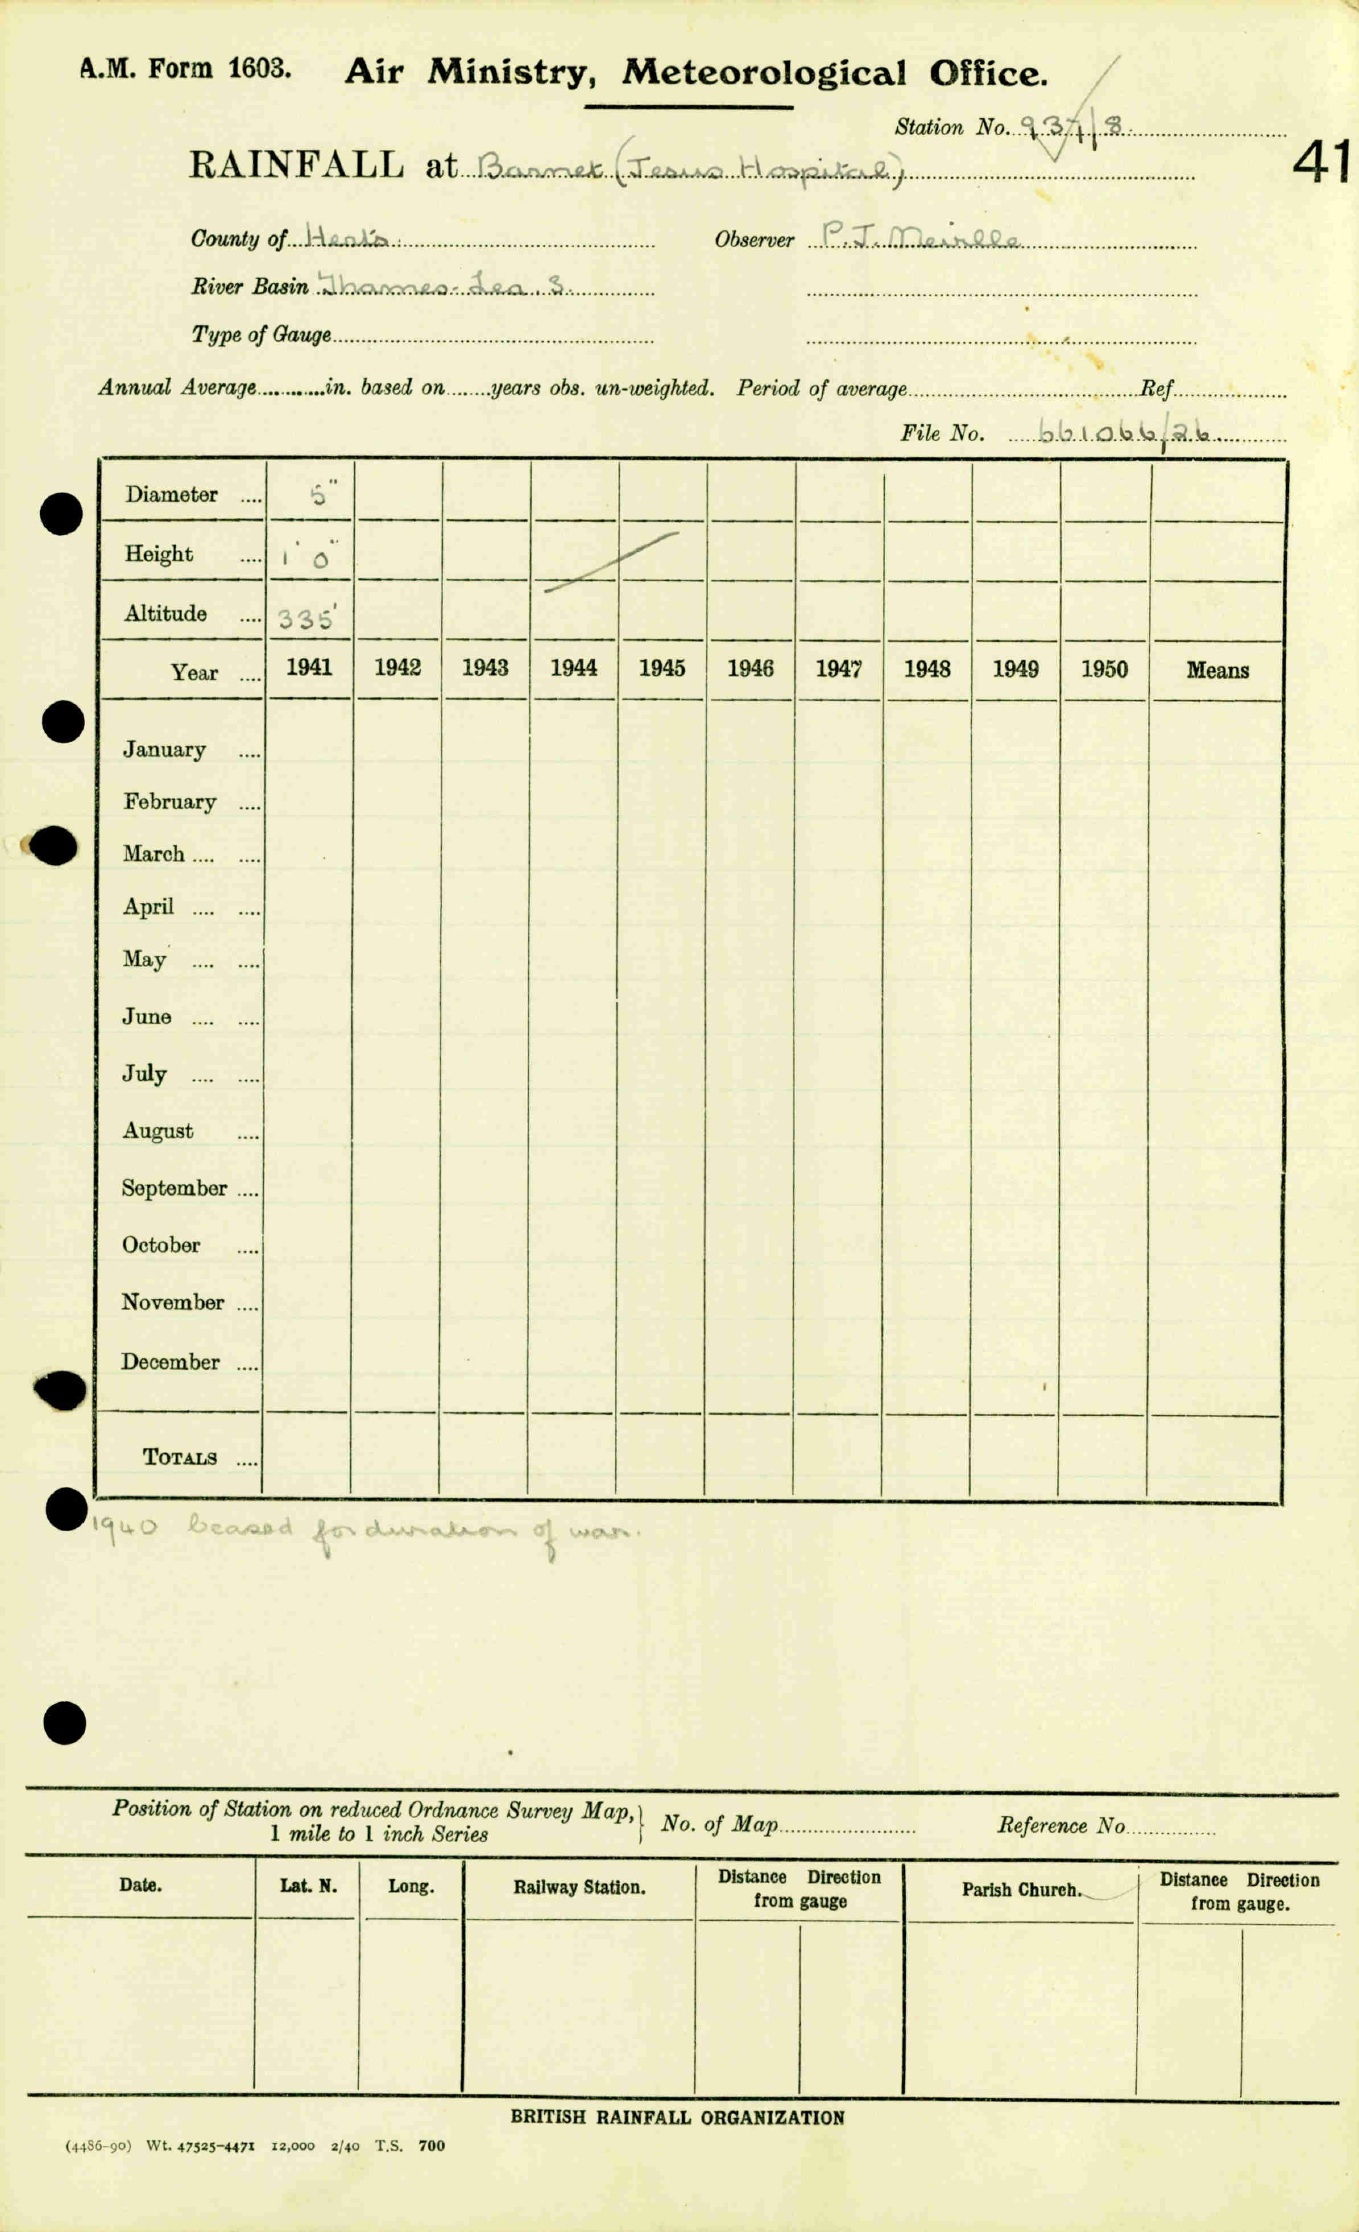 A.M. Form 1603. Air Ministry, Meteorological Office.
Station No. 937/8
41
RAINFALL at Barnet (Jesus Hospital)
County of Herts. Observer P.J.
River Basin Thames-Lea. 3.
Type of Gauge
Annual Average in. based on years obs. un-weighted. Period of average Ref
File No. 661066/26
Diameter .... 5"
Height .... 1' 0"
Altitude .... 335'
Year .... 1941 1942 1943 1944 1945 1946 1947 1948 1949 1950 Means
January ....
February ....
March .... ....
April .... ....
May .... ....
June .... ....
July .... ....
August ....
September ....
October ....
November ....
December ....
TOTALS ....
1940 Ceased for duration of war.
Position of Station on reduced Ordnance Survey Map, } No. of Map Reference No
1 mile to 1 inch Series
Date. Lat. N. Long. Railway Station. Distance Direction from gauge Parish Church. Distance Direction from gauge.
BRITISH RAINFALL ORGANIZATION
(4486-90) Wt. 47525-4471 12,000 2/40 T.S. 700